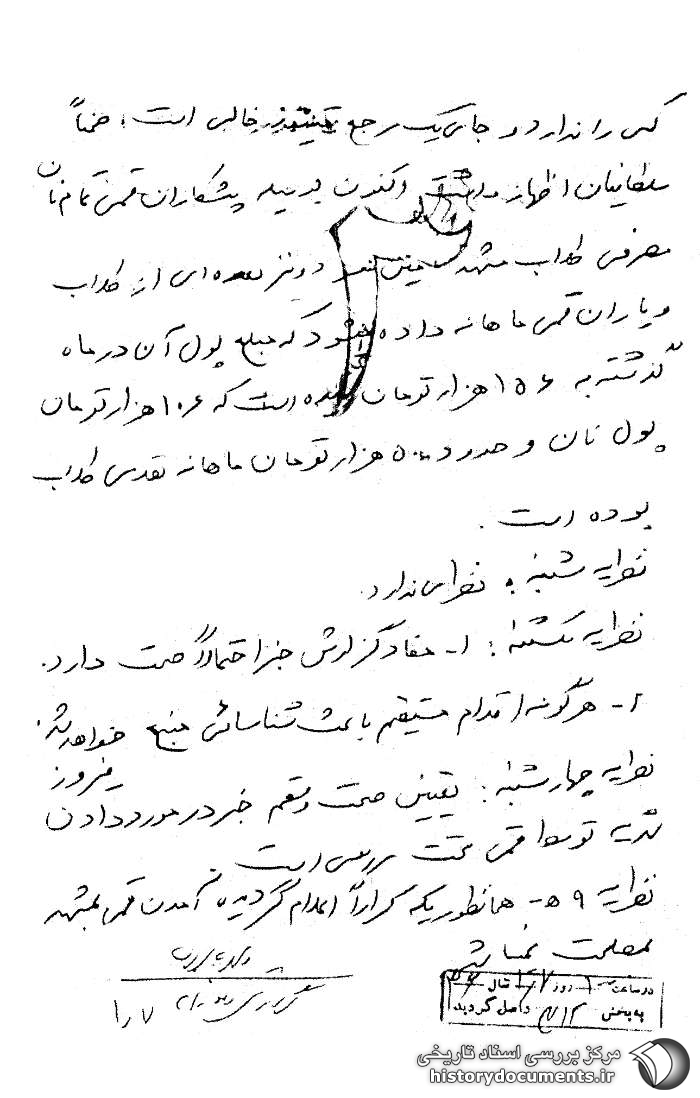 کس را ندارد و جای یک مرجع در خالی است، ضمناً
سلطانیان اظهار داشت اکنون بوسیله پیشکاران قمی تمام نان
مصرفی طلاب مشهد و نیز بعده‌ای از طلاب
و یاران قمی ماهانه داده میشود که مبلغ پول آن در ماه
گذشته به ۱۵۶ هزار تومان رسیده است که ۱۰۶ هزار تومان
پول نان و حدود ۵۰ هزار تومان ماهانه نقدی طلاب
بوده است.
نظریه شنبه: نظرای ندارد.
نظریه یکشنبه: ۱- مفاد گزارش جز احتمالاً صحت دارد.
۲- هر گونه اقدام مستقیم باعث شناسائی منبع خواهد شد.
نظریه چهارشنبه: تعیین صحت و سقم خبر در مورد دادن
شهریه توسط قمی تحت بررسی است. فیروز
نظریه ۹ه‍- همانطوریکه کراراً اعلام گردیده آمدن قمی بمشهد
بمصلحت نمیباشد
۱٫۷
در ساعت روز سال
به بخش ۳۱۲ واصل گردید
مرکز بررسی اسناد تاریخی
historydocuments.ir